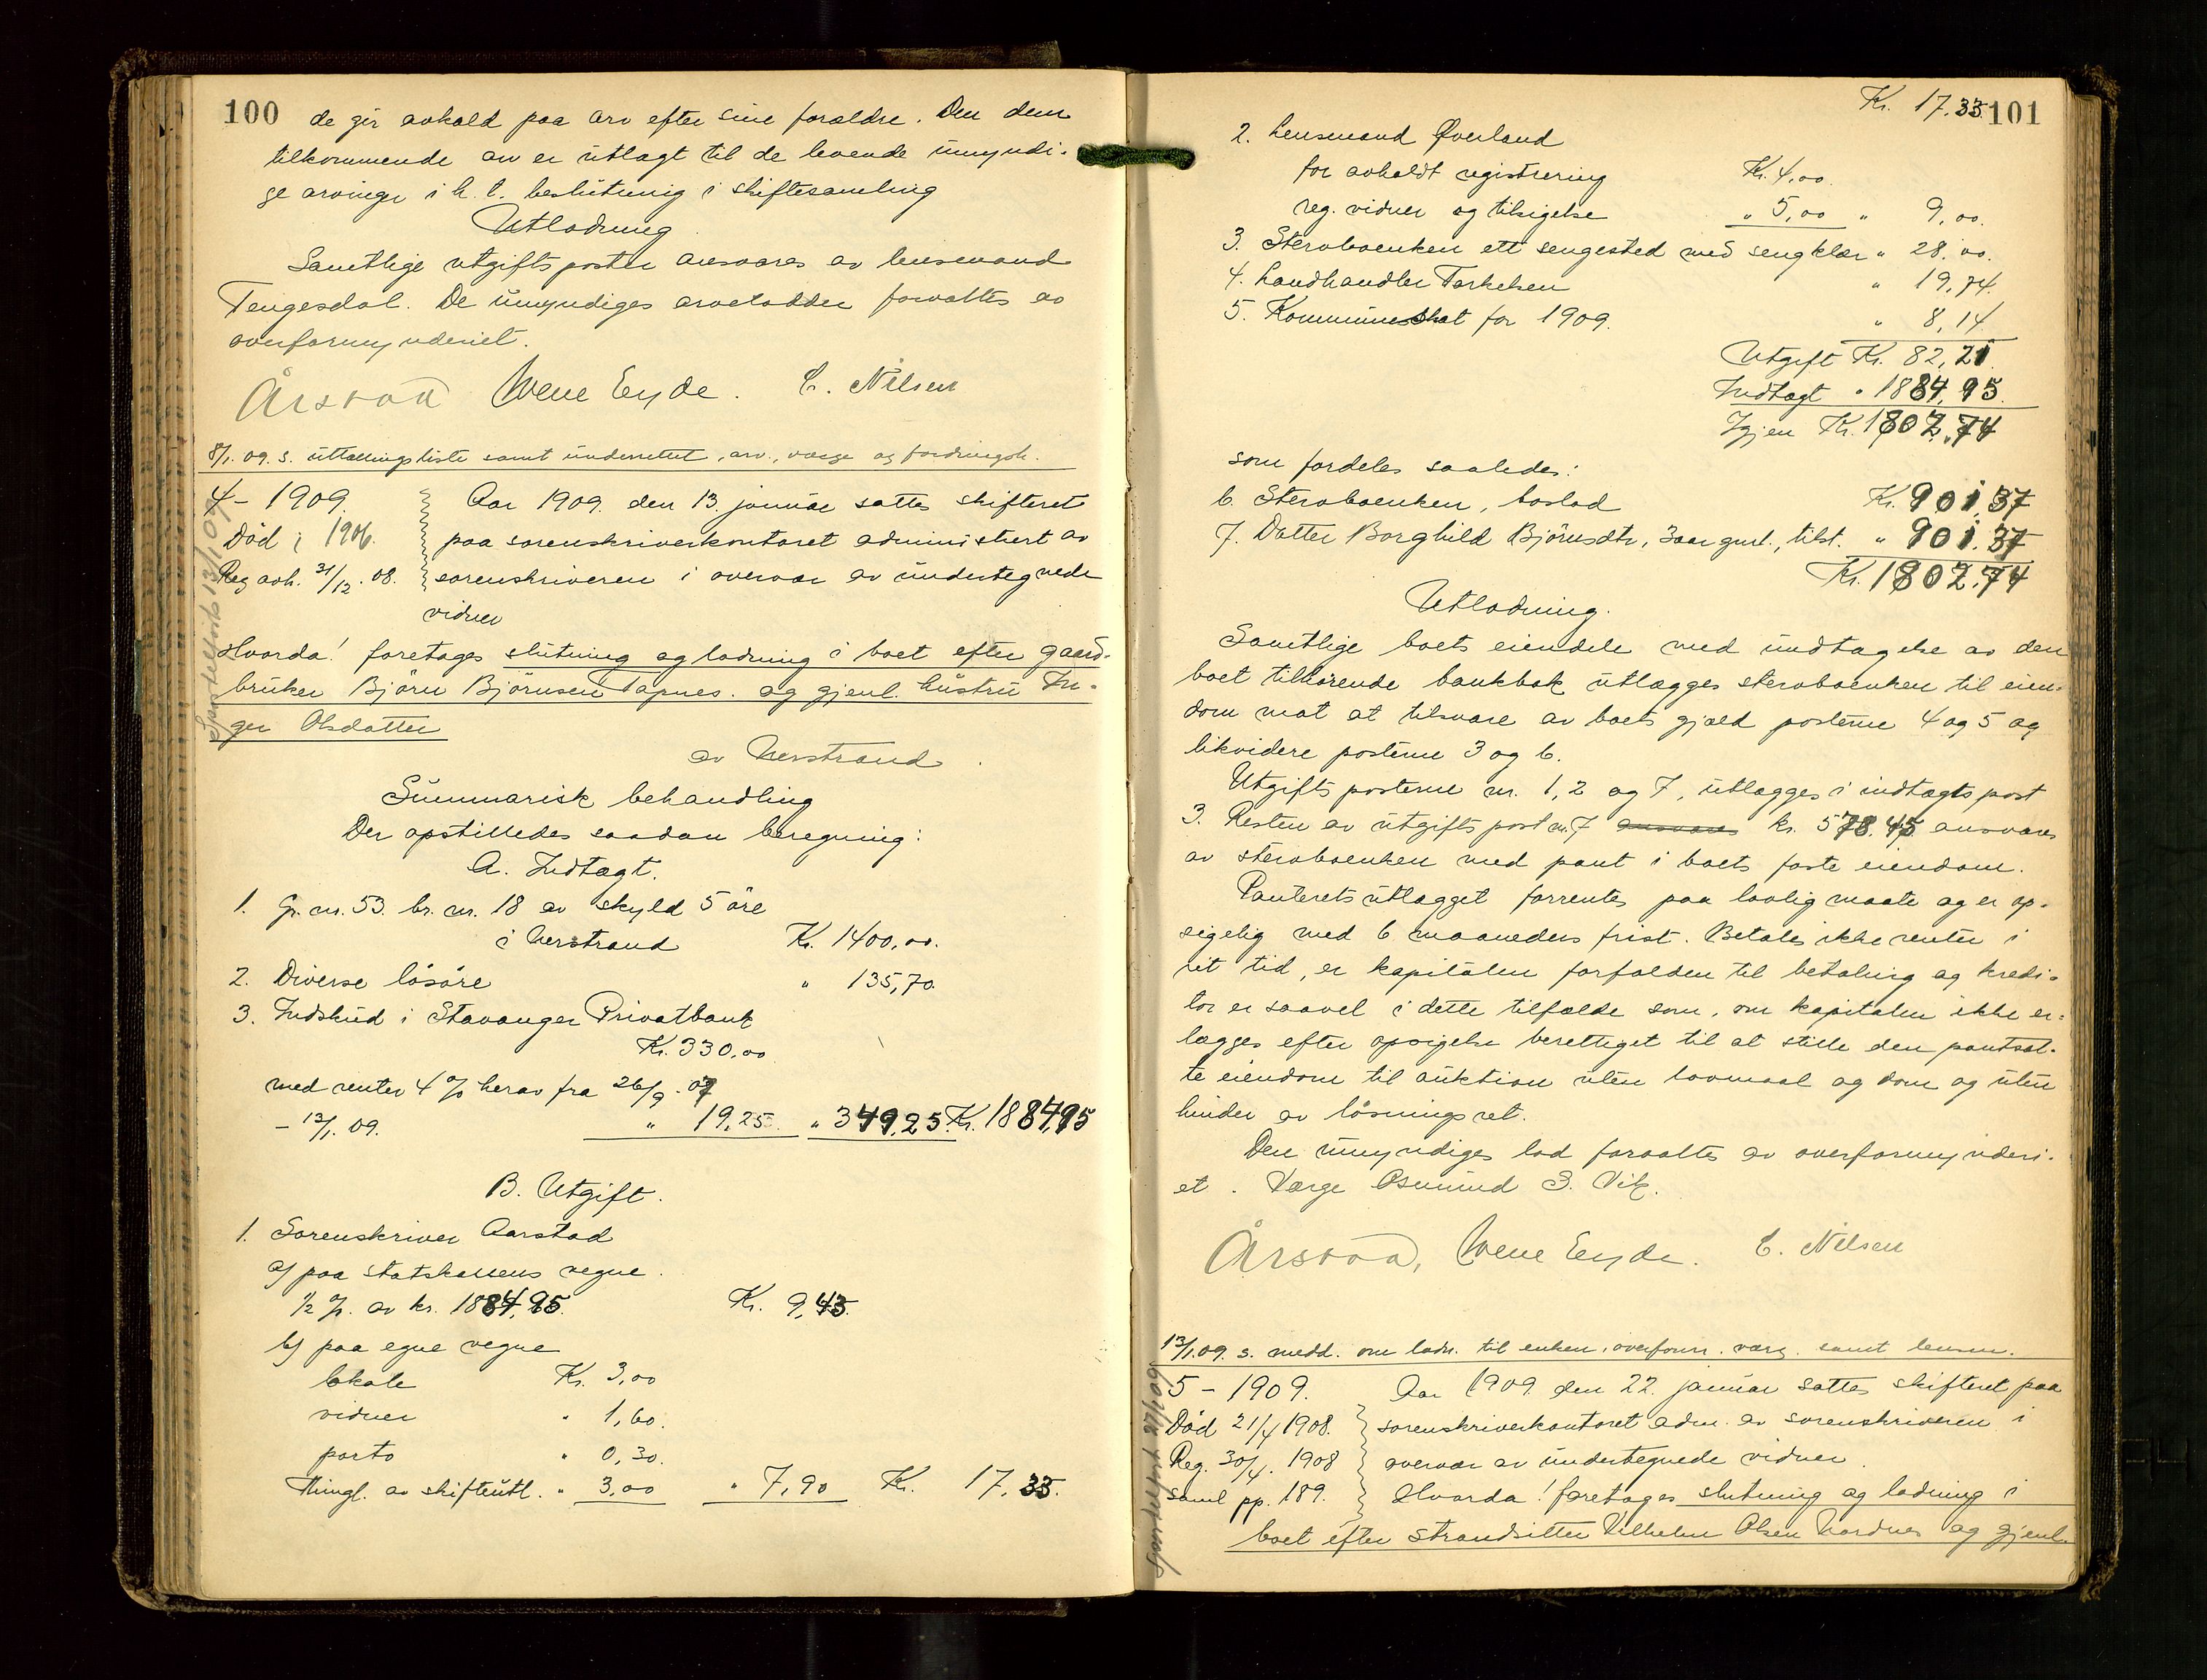 100
de gir avkald paa arv efter sine forældre. Den dem
tilkommende arv er utlagt til de levende umyndi-
ge arvinge i h. t. beslutning i skiftesamling
Utlodning
Samtlige utgiftsposter ansvares av lensmand
Tengesdal. De umyndiges arvelodder forvaltes av
overformynderiet.
Årstad Wene Eyde. C. Nilsen
8/1. 09. s. uttællingsliste samt underrettet, arv., værge og fordringsh.
4 - 1909.
Død i 1906.
Reg avh. 31/12. 08.
Aar 1909. den 13. januar sattes skifteret
paa sorenskriverkontoret administrert av
sorenskriveren i overvær av undertegnede
vidner
Hvorda! foretages slutning og lodning i boet efter gaard-
bruker Bjørn Bjørnsen Tapnes. og gjenl. hustru In-
ger Olsdatter
av Nerstrand.
Summarisk behandling
Der opstilledes saadan beregning:
A. Indtægt.
1. Gr. nr. 53. br. nr. 18 av skyld 5 öre
i Nerstrand Kr. 1400,00.
2. Diverse lösöre " 135,70.
3. Indskud i Stavanger Privatbank
Kr. 330,00
med renter 4 % herav fra 26/9. 07
- 13/1. 09. " 19,25. " 349,25. Kr. 1884,95
B. Utgift.
1. Sorenskriver Aarstad
a) paa statskassens vegne.
1/2 %. av kr. 1884,95. Kr. 9,43.
b) paa egne vegne
lokale Kr. 3,00
vidner " 1,60.
porto " 0,30.
Thingl. av skifteutl. " 3,00 " 7,90 Kr. 17,33.
Kr. 17.33. 101
2. Lensmand Øverland
for avholdt registrering Kr. 4,00.
reg. vidner og tilsigelse " 5,00 " 9,00.
3. Stervboenken ett sengested med sengklær " 28.00.
4. Landhandler Torkelsen " 19,74.
5. Kommuneskat for 1909. " 8,14
Utgift Kr. 82,21.
Indtægt " 1884,95.
Igjen Kr. 1802,74
som fordeles saaledes:
6. Stervboenken, boslod Kr. 901,37
7. Datter Borghild Bjørnsdtr, 3 aar gml., tilst. " 901.37
Kr. 1802.74
Utlodning.
Samtlige boets eiendele med undtagelse av den
boet tilhørende bankbok utlægges stervboenken til eien-
dom mot at tilsvare av boets gjæld posterne 4 og 5 og
likvidere posterne 3 og 6.
Utgiftsposterne nr. 1, 2 og 7, utlægges i indtægtspost
3. Resten av utgiftspost nr. 7 ansvares kr. 578.45 ansvares
av stervboenken med pant i boets faste eiendom.
Panteretsutlægget forrentes paa lovlig maate og er op-
sigelig med 6 maaneders frist. Betales ikke renter i
ret tid, er kapitalen forfalden til betaling og kredi-
tor er saavel i dette tilfælde som, om kapitalen ikke er-
lægges efter opsigelse berettiget til at stille den pantsat-
te eiendom til auktion uten lovmaal og dom og uten
hinder av løsningsret.
Den umyndiges lod forvaltes av overformynderi-
et. Værge Osmund S. Vik.
Årstad, Wene Eyde. C. Nilsen
13/1. 09. s. medd. om lodn. til enken, overform. værg. samt lensm.
5 - 1909.
Død 21/4 1908.
Reg. 30/4. 1908
Saml pp. 189.
Aar 1909 den 22. januar sattes skifteret paa
sorenskriverkontoret adm. av sorenskriveren i
overvær av undertegnede vidner.
Hvorda! foretages slutning og lodning i
boet efter strandsitter Vilhelm Olsen Nordnes og gjenl.